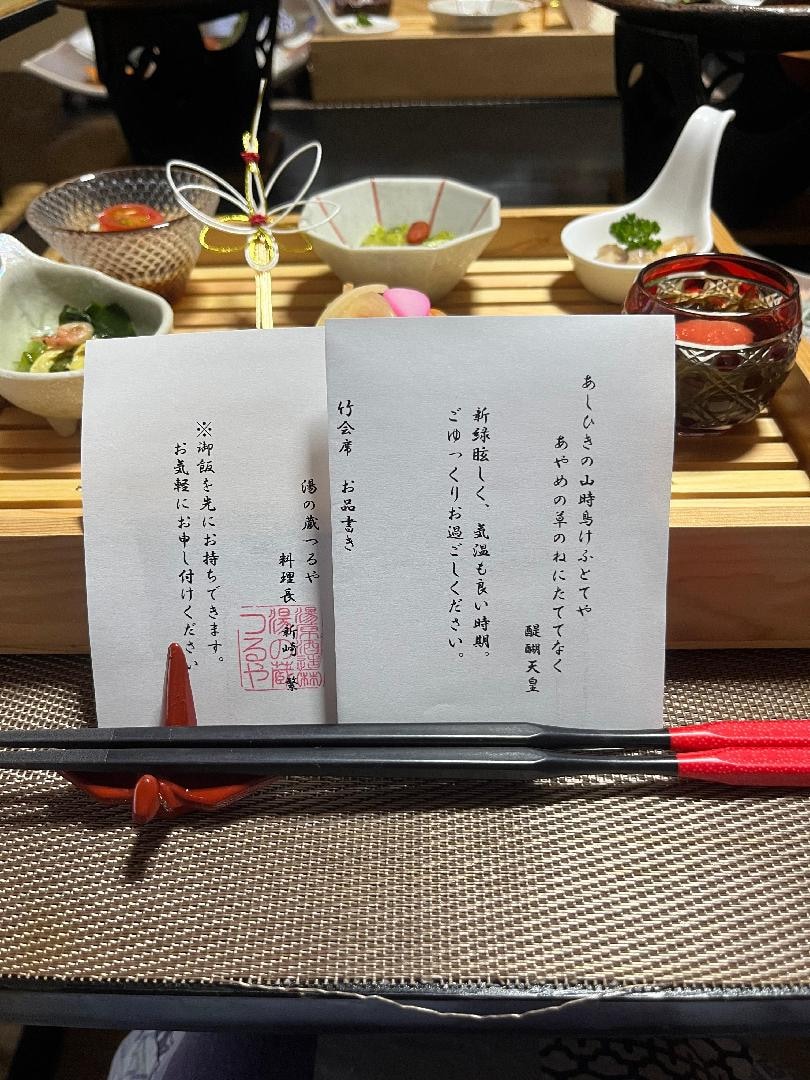 あしひきの山時鳥けふとてや
あやめの草のねにたててなく
醍醐天皇
新緑眩しく、気温も良い時期。
ごゆっくりお過ごしください。
竹会席 お品書き
湯の蔵つるや
料理長 新崎 繁
※御飯を先にお持ちできます。
お気軽にお申し付けください
湯の蔵
つるや